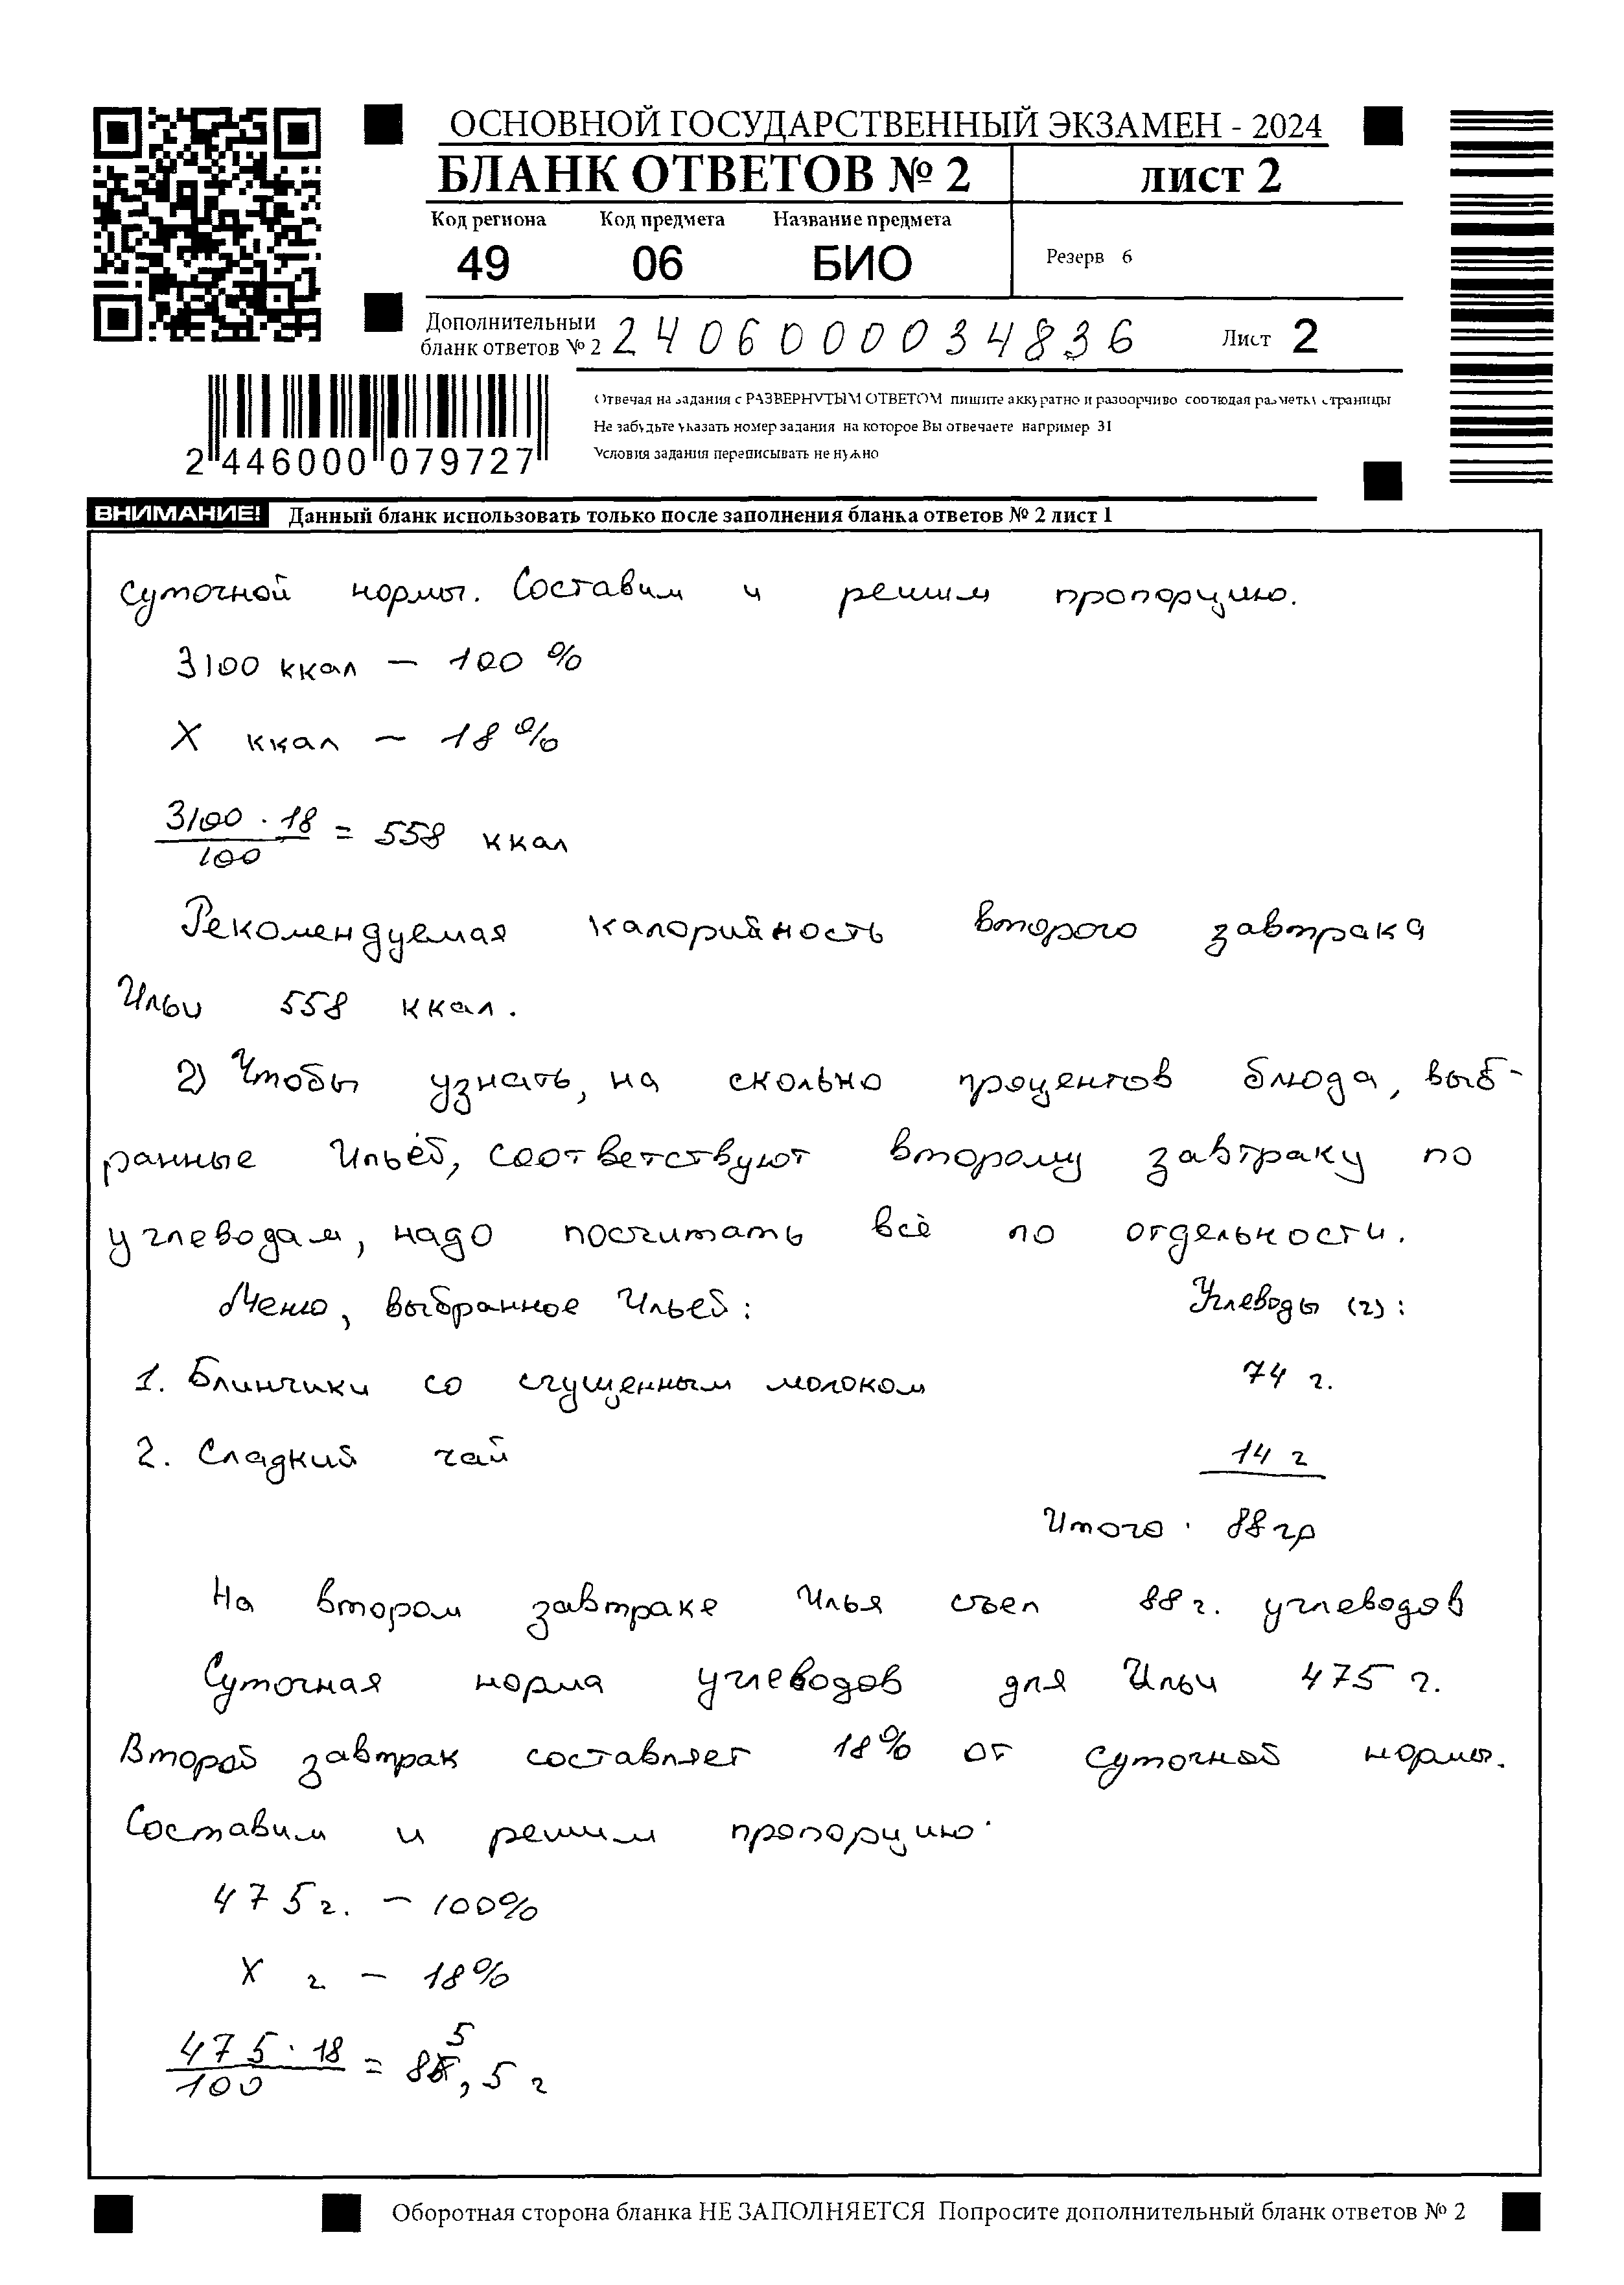 ОСНОВНОЙ ГОСУДАРСТВЕННЫЙ ЭКЗАМЕН - 2024
БЛАНК ОТВЕТОВ № 2
ЛИСТ 2
Код региона Код предмета Название предмета
49 06 БИО
Резерв 6
Дополнительный
бланк ответов № 2 2406000034836
Лист 2
Отвечая на задания с РАЗВЕРНУТЫМ ОТВЕТОМ пишите аккуратно и разборчиво соблюдая разметку страницы
Не забудьте указать номер задания на которое Вы отвечаете например 31
Условия задания переписывать не нужно
2 446000 079727
ВНИМАНИЕ! Данный бланк использовать только после заполнения бланка ответов № 2 лист 1
суточной нормы. Составим и решим пропорцию.
3100 ккал – 100 %
X ккал – 18 %
3100 · 18 / 100 = 558 ккал
Рекомендуемая калорийность второго завтрака
Ильи 558 ккал.
2) Чтобы узнать, на сколько процентов блюда, выб-
ранные Ильёй, соответствуют второму завтраку по
углеводам, надо посчитать всё по отдельности.
Меню, выбранное Ильей: Углеводы (г):
1. Блинчики со сгущенным молоком 74 г.
2. Сладкий чай 14 г
Итого · 88 гр
На втором завтраке Илья съел 88 г. углеводов
Суточная норма углеводов для Ильи 475 г.
Второй завтрак составляет 18% от суточной нормы.
Составим и решим пропорцию·
475 г. – 100%
X г – 18%
475 · 18 / 100 = 85,5 г
Оборотная сторона бланка НЕ ЗАПОЛНЯЕТСЯ Попросите дополнительный бланк ответов № 2